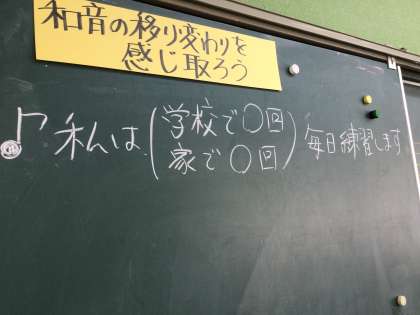 和音の移り変わりを
感じ取ろう
♪私は(学校で○回
家で○回)毎日練習します